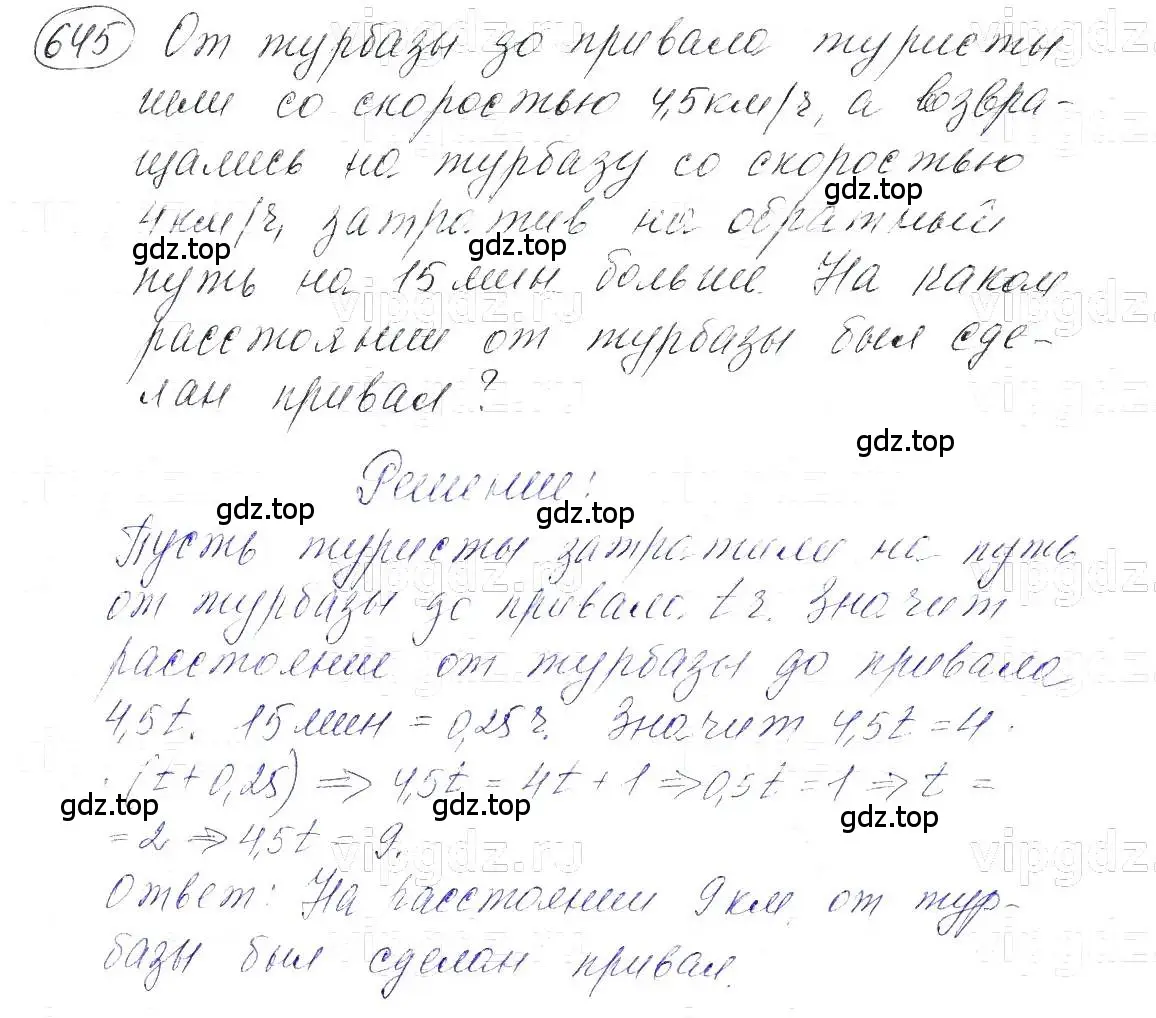 645 От турбазы до привала туристы
шли со скоростью 4,5км/ч, а возвра-
щались на турбазу со скоростью
4км/ч, затратив на обратный
путь на 15мин больше. На каком
расстоянии от турбазы был сде-
лан привал?
Решение:
Пусть туристы затратили на путь
от турбазы до привала t ч. Значит
расстояние от турбазы до привала
4,5t. 15мин = 0,25ч. Значит 4,5t = 4 ·
· (t + 0,25) ⇒ 4,5t = 4t + 1 ⇒ 0,5t = 1 ⇒ t =
= 2 ⇒ 4,5t = 9.
Ответ: На расстоянии 9км от тур-
базы был сделан привал.
gdz.top
gdz.top
gdz.top
gdz.top
gdz.top
gdz.top
gdz.top
gdz.top
gdz.top
vipgdz.ru
vipgdz.ru
vipgdz.ru
vipgdz.ru